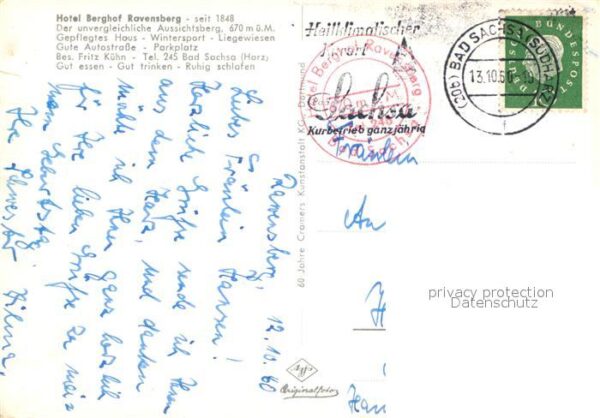 Hotel Berghof Ravensberg - seit 1848
Der unvergleichliche Aussichtsberg, 670 m ü.M.
Gepflegtes Haus - Wintersport - Liegewiesen
Gute Autostraße - Parkplatz
Bes. Fritz Kühn - Tel. 245 Bad Sachsa (Harz)
Gut essen - Gut trinken - Ruhig schlafen
Ravensberg, 12.10.60
Liebes Fräulein Hansen!
Herzliche Grüße sende ich Ihnen
aus dem Harz, und danken
möchte ich Ihnen ganz herzlich
für Ihre lieben Grüße zu mei
nem Geburtstag.
Ihre Schwester Hilma.
60 Jahre Cramers Kunstanstalt KG., Dortmund
Agfa
Originalfoto
Heilklimatischer
Kurort
Bad
Sachsa
Kurbetrieb ganzjährig
Hotel Berghof Ravensberg
Bad Sachsa
(20b) BAD SACHSA (SÜDHARZ)
13.10.60
f
DEUTSCHE BUNDESPOST
Fräulein
An
H
privacy protection
Datenschutz